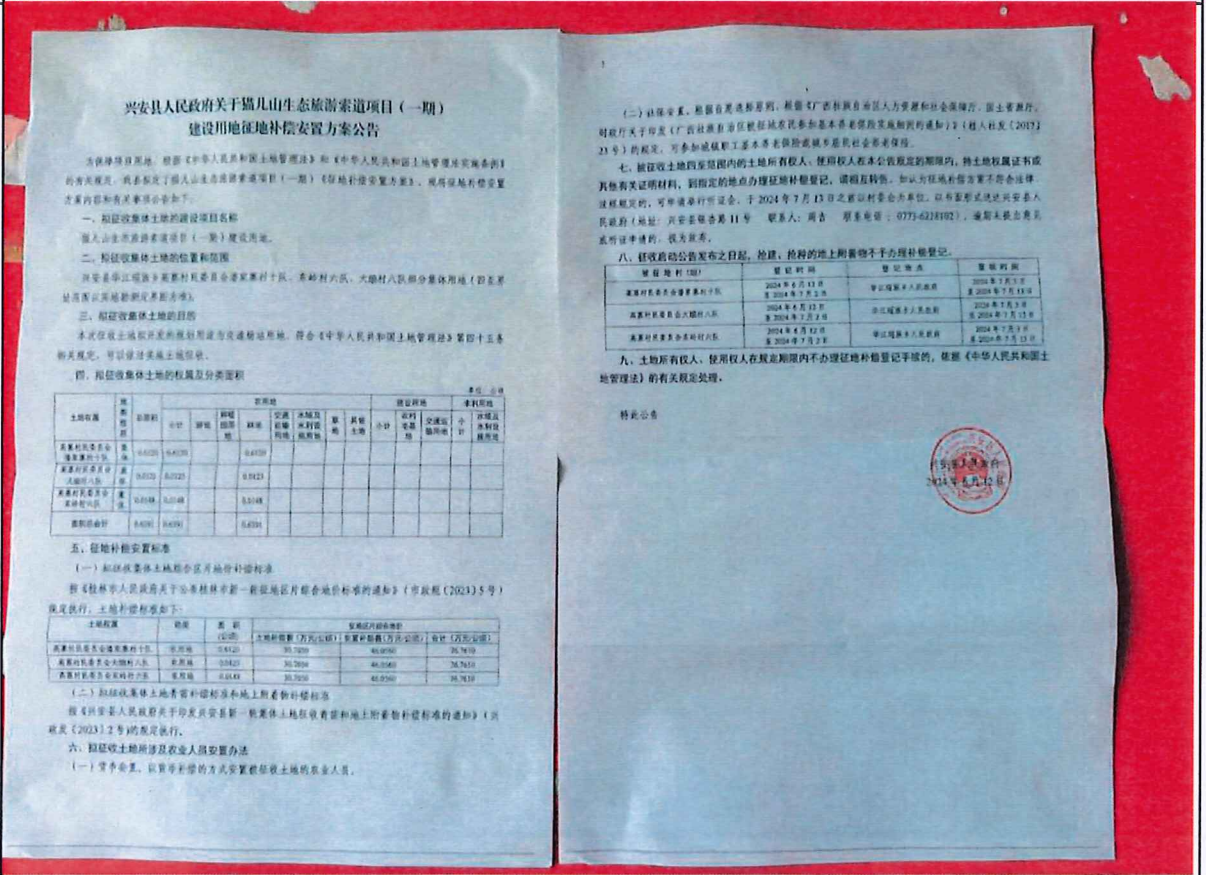 兴安县人民政府关于猫儿山生态旅游索道项目（一期）
建设用地征地补偿安置方案公告
为保障项目用地，根据《中华人民共和国土地管理法》和《中华人民共和国土地管理法实施条例》
的有关规定，我县拟定了猫儿山生态旅游索道项目（一期）《征地补偿安置方案》，现将征地补偿安置
方案内容和有关事项公告如下：
一、拟征收集体土地的建设项目名称
猫儿山生态旅游索道项目（一期）建设用地。
二、拟征收集体土地的位置和范围
兴安县华江瑶族乡高寨村民委员会潘家寨村十队、 六队、大 村八队部分集体用地（四至界
址范围以实地勘测定界图为准）。
三、拟征收集体土地的目的
本次征收土地拟开发的规划用途为交通运输用地，符合《中华人民共和国土地管理法》第四十五条
相关规定，可以依法实施土地征收。
四、拟征收集体土地的权属及分类面积
单位：公顷
土地权属 总面积 农用地 建设用地 未利用地
小计 耕地 种植园用地 林地 交通运输用地 水域及水利设施用地 草地 其他土地 小计 农村宅基地 交通运输用地 小计 水域及水利设施用地
高寨村民委员会潘家寨村十队 集体 0.6120 0.6120 0.6120
高寨村民委员会 村八队 集体 0.0123 0.0123 0.0123
高寨村民委员会 村六队 集体 0.0148 0.0148 0.0148
面积总合计 0.6391 0.6391 0.6391
五、征地补偿安置标准
（一）拟征收集体土地综合区片地价补偿标准
按《桂林市人民政府关于公布桂林市新一轮征地区片综合地价标准的通知》（市政规〔2023〕5号）
规定执行，土地补偿标准如下：
土地权属 地类 面积（公顷） 征地区片综合地价
土地补偿费（万元/公顷） 安置补助费（万元/公顷） 合计（万元/公顷）
高寨村民委员会潘家寨村十队 农用地 0.6120 76.7650
高寨村民委员会大 村八队 农用地 0.0123 76.7650
高寨村民委员会 村六队 农用地 0.0148 76.7650
（二）拟征收集体土地青苗补偿标准和地上附着物补偿标准
按《兴安县人民政府关于印发兴安县新一轮集体土地征收青苗和地上附着物补偿标准的通知》（兴
政发〔2023〕2号）的规定执行。
六、拟征收土地所涉及农业人员安置办法
（一）货币安置。以货币补偿的方式安置被征收土地的农业人员。
（二）社保安置。根据自愿选择原则，根据《广西壮族自治区人力资源和社会保障厅、国土资源厅、
财政厅关于印发〈广西壮族自治区被征地农民参加基本养老保险实施细则的通知〉》（桂人社发〔2017〕
23号）的规定，可参加城镇职工基本养老保险或城乡居民社会养老保险。
七、被征收土地四至范围内的土地所有权人、使用权人在本公告规定的期限内，持土地权属证书或
其他有关证明材料，到指定的地点办理征地补偿登记，请相互转告。如认为征地补偿方案不符合法律、
法规规定的，可申请举行听证会，于2024年7月13日之前以村委会为单位，以书面形式送达兴安县人
民政府（地址：兴安县银杏路11号 联系人：周 联系电话：0773-6228102）。逾期未提出意见
或听证申请的，视为放弃。
八、征收启动公告发布之日起，抢建、抢种的地上附着物不予办理补偿登记。
被征地村（组） 登记时间 登记地点 登核时间
高寨村民委员会潘家寨村十队 2024年6月13日至2024年7月2日 华江瑶族乡人民政府 2024年7月3日至2024年7月13日
高寨村民委员会大 村八队 至2024年7月2日 华江瑶族乡人民政府 2024年7月3日至2024年7月13日
高寨村民委员会 村六队 至2024年7月2日 华江瑶族乡人民政府 2024年7月3日至2024年7月13日
九、土地所有权人、使用权人在规定期限内不办理征地补偿登记手续的，依据《中华人民共和国土
地管理法》的有关规定处理。
特此公告
兴安县人民政府
2024年6月12日